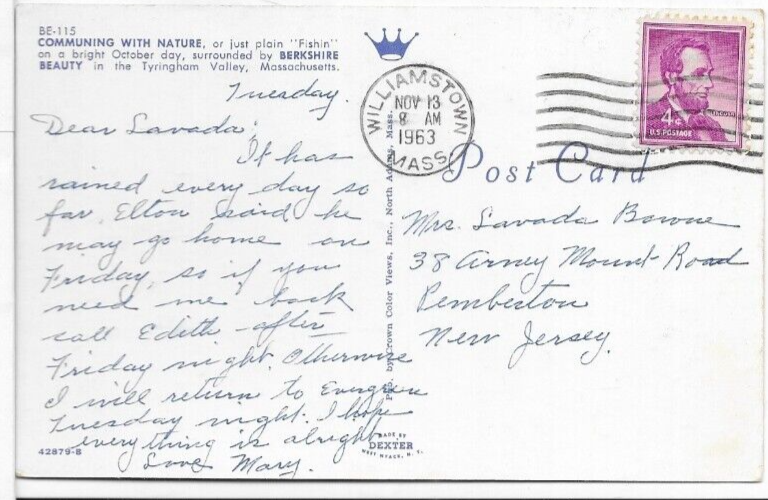 BE-115
COMMUNING WITH NATURE, or just plain "Fishin"
on a bright October day, surrounded by BERKSHIRE
BEAUTY in the Tyringham Valley, Massachusetts.
Tuesday.
Dear Lavada;
It has
rained every day so
far. Elton said he
may go home on
Friday, so if you
need me back
call Edith after
Friday night. Otherwise
I will return to Evergreen
Tuesday night. I hope
everything is alright
Love Mary.
42879-B
Pub. by Crown Color Views, Inc., North Adams, Mass.
MADE BY
DEXTER
WEST NYACK, N.Y.
WILLIAMSTOWN
NOV 13
8 AM
1963
MASS
4¢
LINCOLN
U.S. POSTAGE
Post Card
Mrs. Lavada Bowne
38 Arney Mount Road
Pemberton
New Jersey.